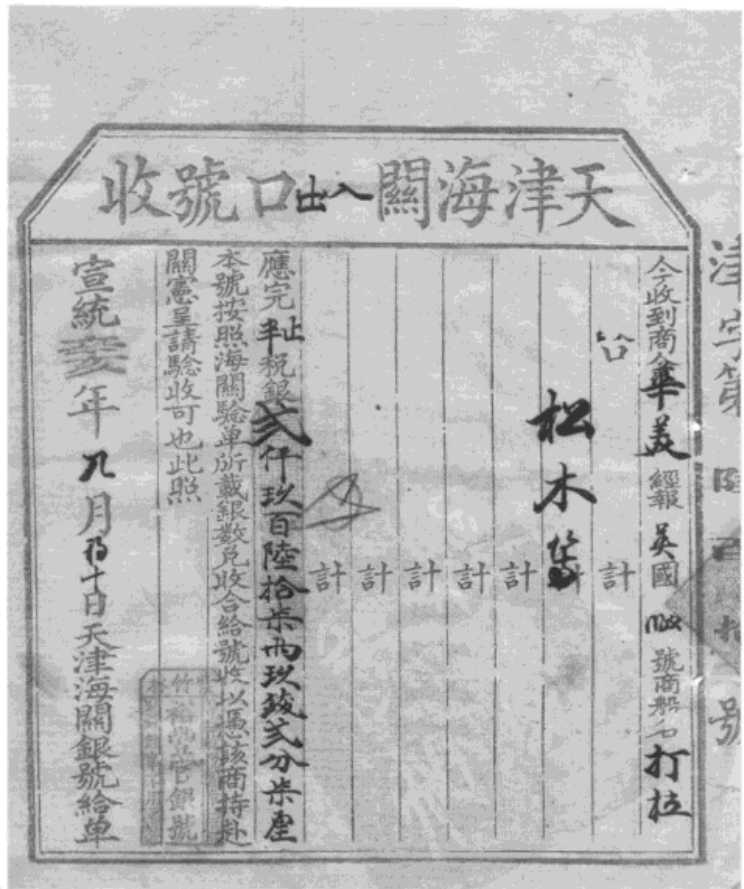 天津海關入出口號收
今收到商人華美經報英國 號商船名打拉
計
松木等
計
計
計
計
計
計
應完正稅銀弍仟玖百陸拾柒両玖錢弍分柒厘
本號按照海關驗單所載銀數兌收合給號收以憑該商持赴
關憲呈請驗收可也此照
宣統 年九月初十日天津海關銀號給單
津字第 號